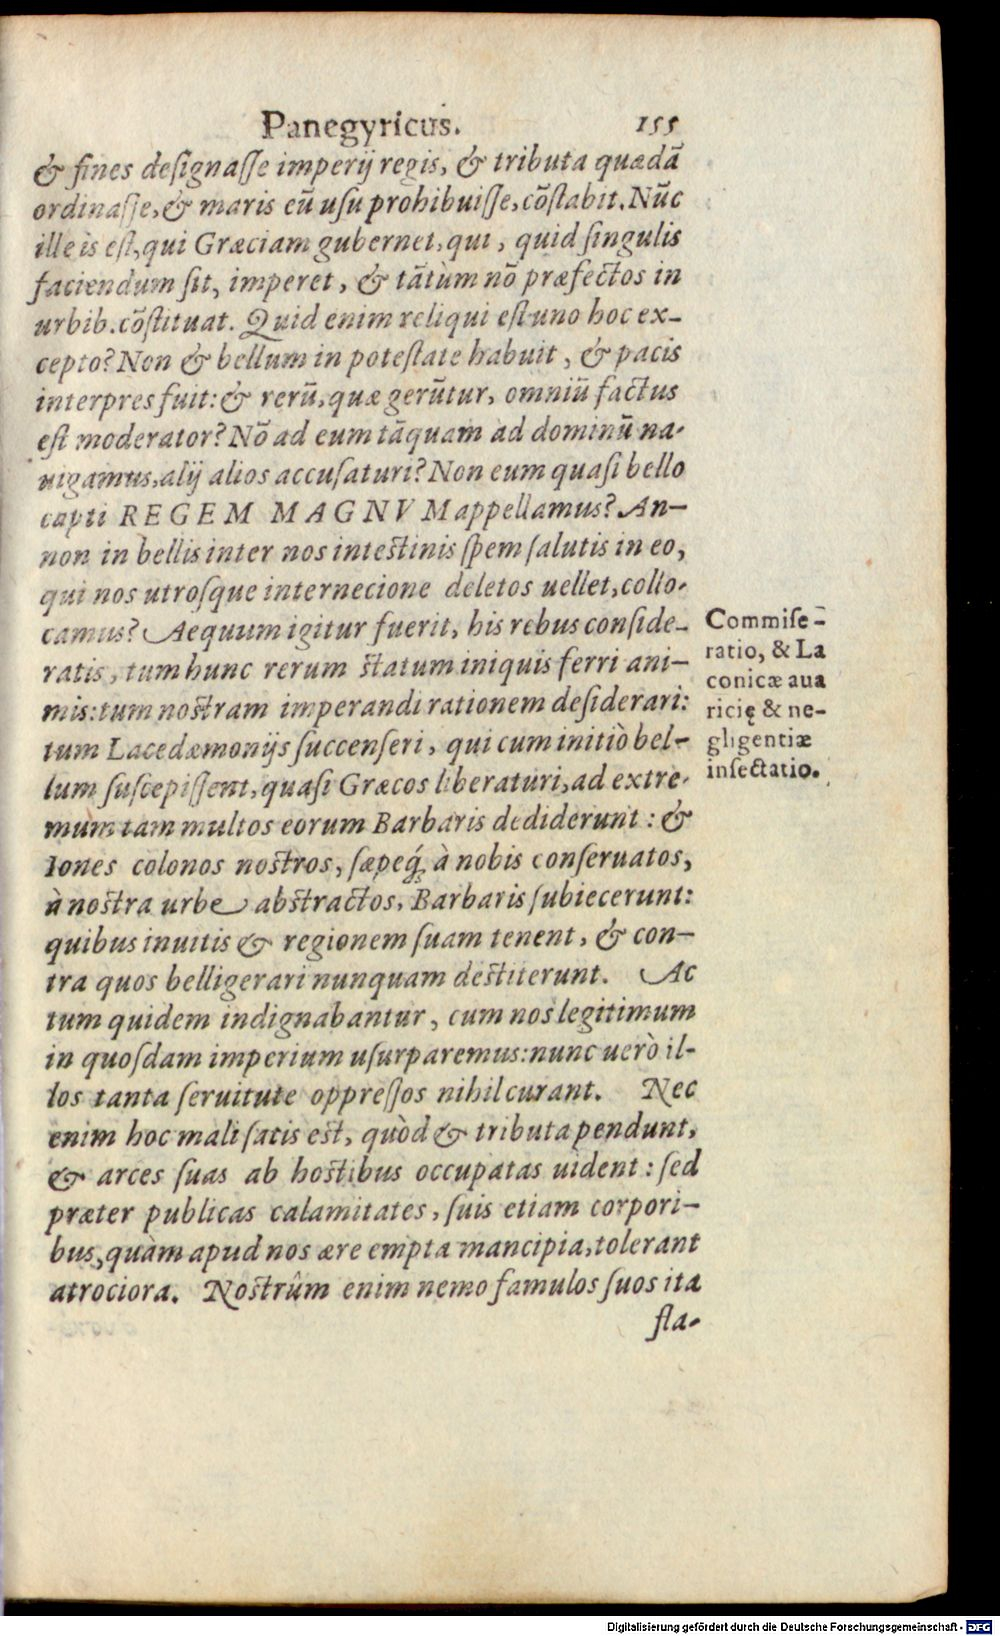 Panegyricus. 155
& fines deſignaſſe imperij regis, & tributa quædã
ordinaſſe, & maris eũ uſu prohibuiſſe, cõſtabit. Nũc
ille is eſt, qui Græciam gubernet, qui, quid ſingulis
faciendum ſit, imperet, & tãtùm nõ præfectos in
urbib. cõſtituat. Quid enim reliqui eſt uno hoc ex-
cepto? Non & bellum in poteſtate habuit, & pacis
interpres fuit: & rerũ, quæ gerũtur, omniũ factus
eſt moderator? Nõ ad eum tãquam ad dominũ na-
uigamus, alij alios accuſaturi? Non eum quaſi bello
capti REGEM MAGNVM appellamus? An-
non in bellis inter nos inteſtinis ſpem ſalutis in eo,
qui nos utroſque internecione deletos uellet, collo-
camus? Aequum igitur fuerit, his rebus conſide-
ratis, tum hunc rerum ſtatum iniquis ferri ani-
mis: tum noſtram imperandi rationem deſiderari:
tum Lacedæmonijs ſuccenſeri, qui cum initiò bel-
lum ſuſcepiſſent, quaſi Græcos liberaturi, ad extre-
mum tam multos eorum Barbaris dediderunt: &
Iones colonos noſtros, ſæpeq́; à nobis conſeruatos,
à noſtra urbe abſtractos, Barbaris ſubiecerunt:
quibus inuitis & regionem ſuam tenent, & con-
tra quos belligerari nunquam deſtiterunt. Ac
tum quidem indignabantur, cum nos legitimum
in quoſdam imperium uſurparemus: nunc uerò il-
los tanta ſeruitute oppreſſos nihil curant. Nec
enim hoc mali ſatis eſt, quòd & tributa pendunt,
& arces ſuas ab hoſtibus occupatas uident: ſed
præter publicas calamitates, ſuis etiam corpori-
bus, quàm apud nos ære empta mancipia, tolerant
atrociora. Noſtrûm enim nemo famulos ſuos ita
fla-
Commiſe-
ratio, & La
conicæ aua
ricię & ne-
gligentiæ
inſectatio.
Digitalisierung gefördert durch die Deutsche Forschungsgemeinschaft - DFG